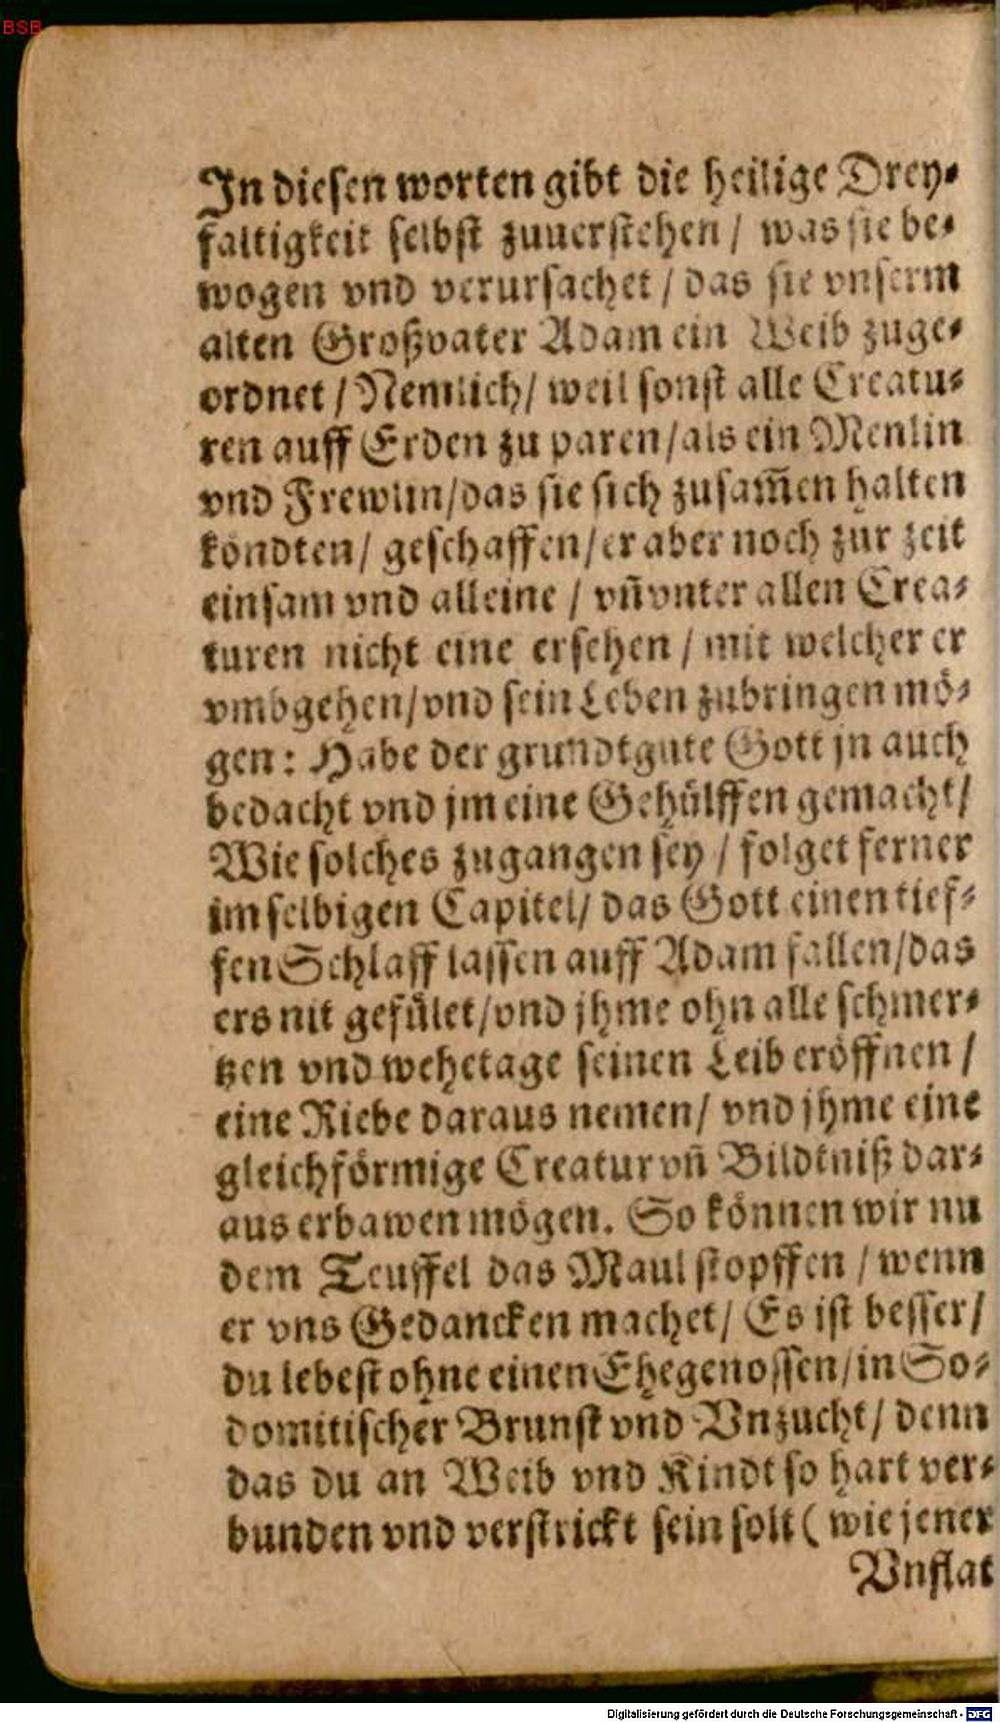 BSB
In diesen worten gibt die heilige Drey⸗
faltigkeit selbst zuuerstehen / was sie be⸗
wogen vnd verursachet / das sie vnserm
alten Großvater Adam ein Weib zuge⸗
ordnet / Nemlich / weil sonst alle Creatu⸗
ren auff Erden zu paren / als ein Menlin
vnd Frewlin / das sie sich zusam̄en halten
köndten / geschaffen / er aber noch zur zeit
einsam vnd alleine / vn̄ vnter allen Crea⸗
turen nicht eine ersehen / mit welcher er
vmbgehen / vnd sein Leben zubringen mö⸗
gen: Habe der grundtgute Gott jn auch
bedacht vnd jm eine Gehülffen gemacht /
Wie solches zugangen sey / folget ferner
im selbigen Capitel / das Gott einen tief⸗
fen Schlaff lassen auff Adam fallen / das
ers nit gefület / vnd jhme ohn alle schmer⸗
tzen vnd wehetage seinen Leib eröffnen /
eine Riebe daraus nemen / vnd jhme eine
gleichförmige Creatur vn̄ Bildtniß dar⸗
aus erbawen mögen. So können wir nu
dem Teuffel das Maul stopffen / wenn
er vns Gedancken machet / Es ist besser /
du lebest ohne einen Ehegenossen / in So⸗
domitischer Brunst vnd Vnzucht / denn
das du an Weib vnd Kindt so hart ver⸗
bunden vnd verstrickt sein solt ( wie jener
Vnflat
Digitalisierung gefördert durch die Deutsche Forschungsgemeinschaft - DFG